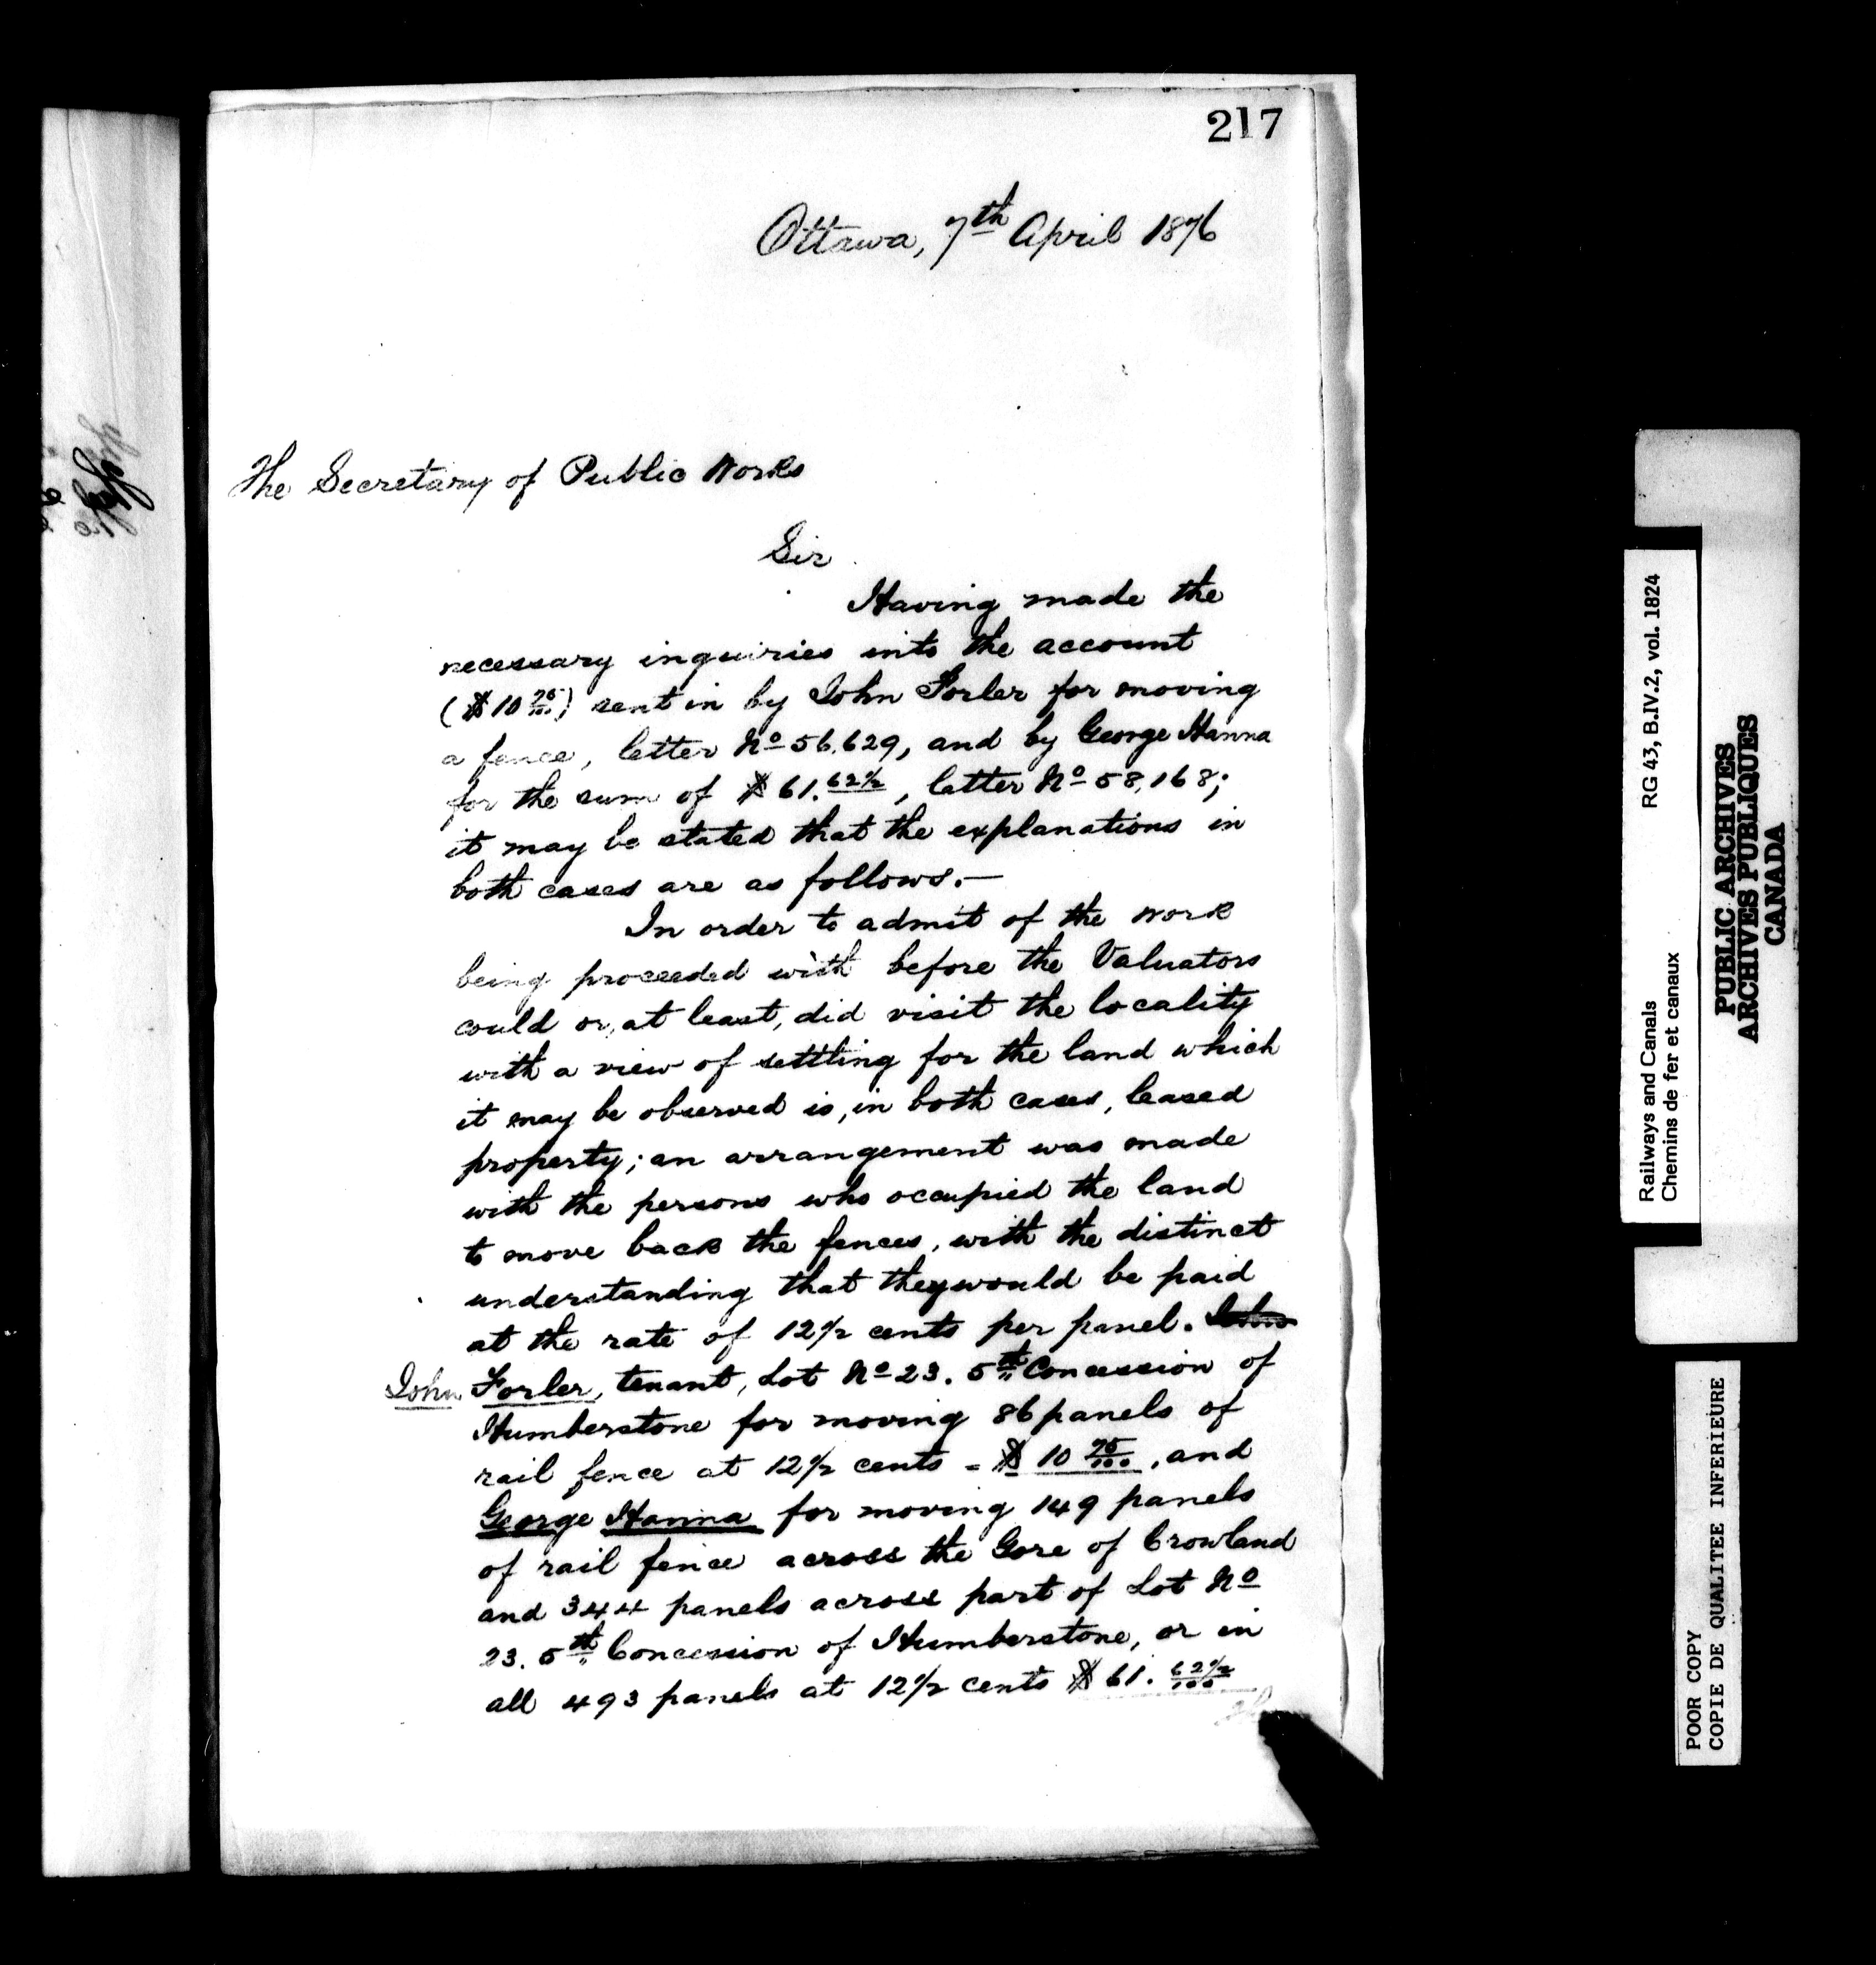 217
Ottawa, 7th April 1876
The Secretary of Public Works
Sir
Having made the
necessary inquiries into the account
($10 75/100) sent in by John Forler for moving
a fence, letter No 56,629, and by George Hanna
for the sum of $61.62½, latter No 58,168;
it may be stated that the explanations in
both cases are as follows.—
In order to admit of the work
being proceeded with before the Valuators
could or, at least, did visit the locality
with a view of settling for the land which
it may be observed is, in both cases, leased
property; an arrangement was made
with the persons who occupied the land
to move back the fences, with the distinct
understanding that they would be paid
at the rate of 12½ cents per panel. John
John Forler, tenant, Lot No 23. 5th Concession of
Humberstone for moving 86 panels of
rail fence at 12½ cents = $10 75/100, and
George Hanna for moving 149 panels
of rail fence across the Gore of Crowland
and 344 panels across part of Lot No
23. 5th Concession of Humberstone, or in
all 493 panels at 12½ cents $61. 62½/100
Railways and Canals RG 43, B.IV.2, vol. 1824
Chemins de fer et canaux
PUBLIC ARCHIVES
ARCHIVES PUBLIQUES
CANADA
POOR COPY
COPIE DE QUALITEE INFERIEURE